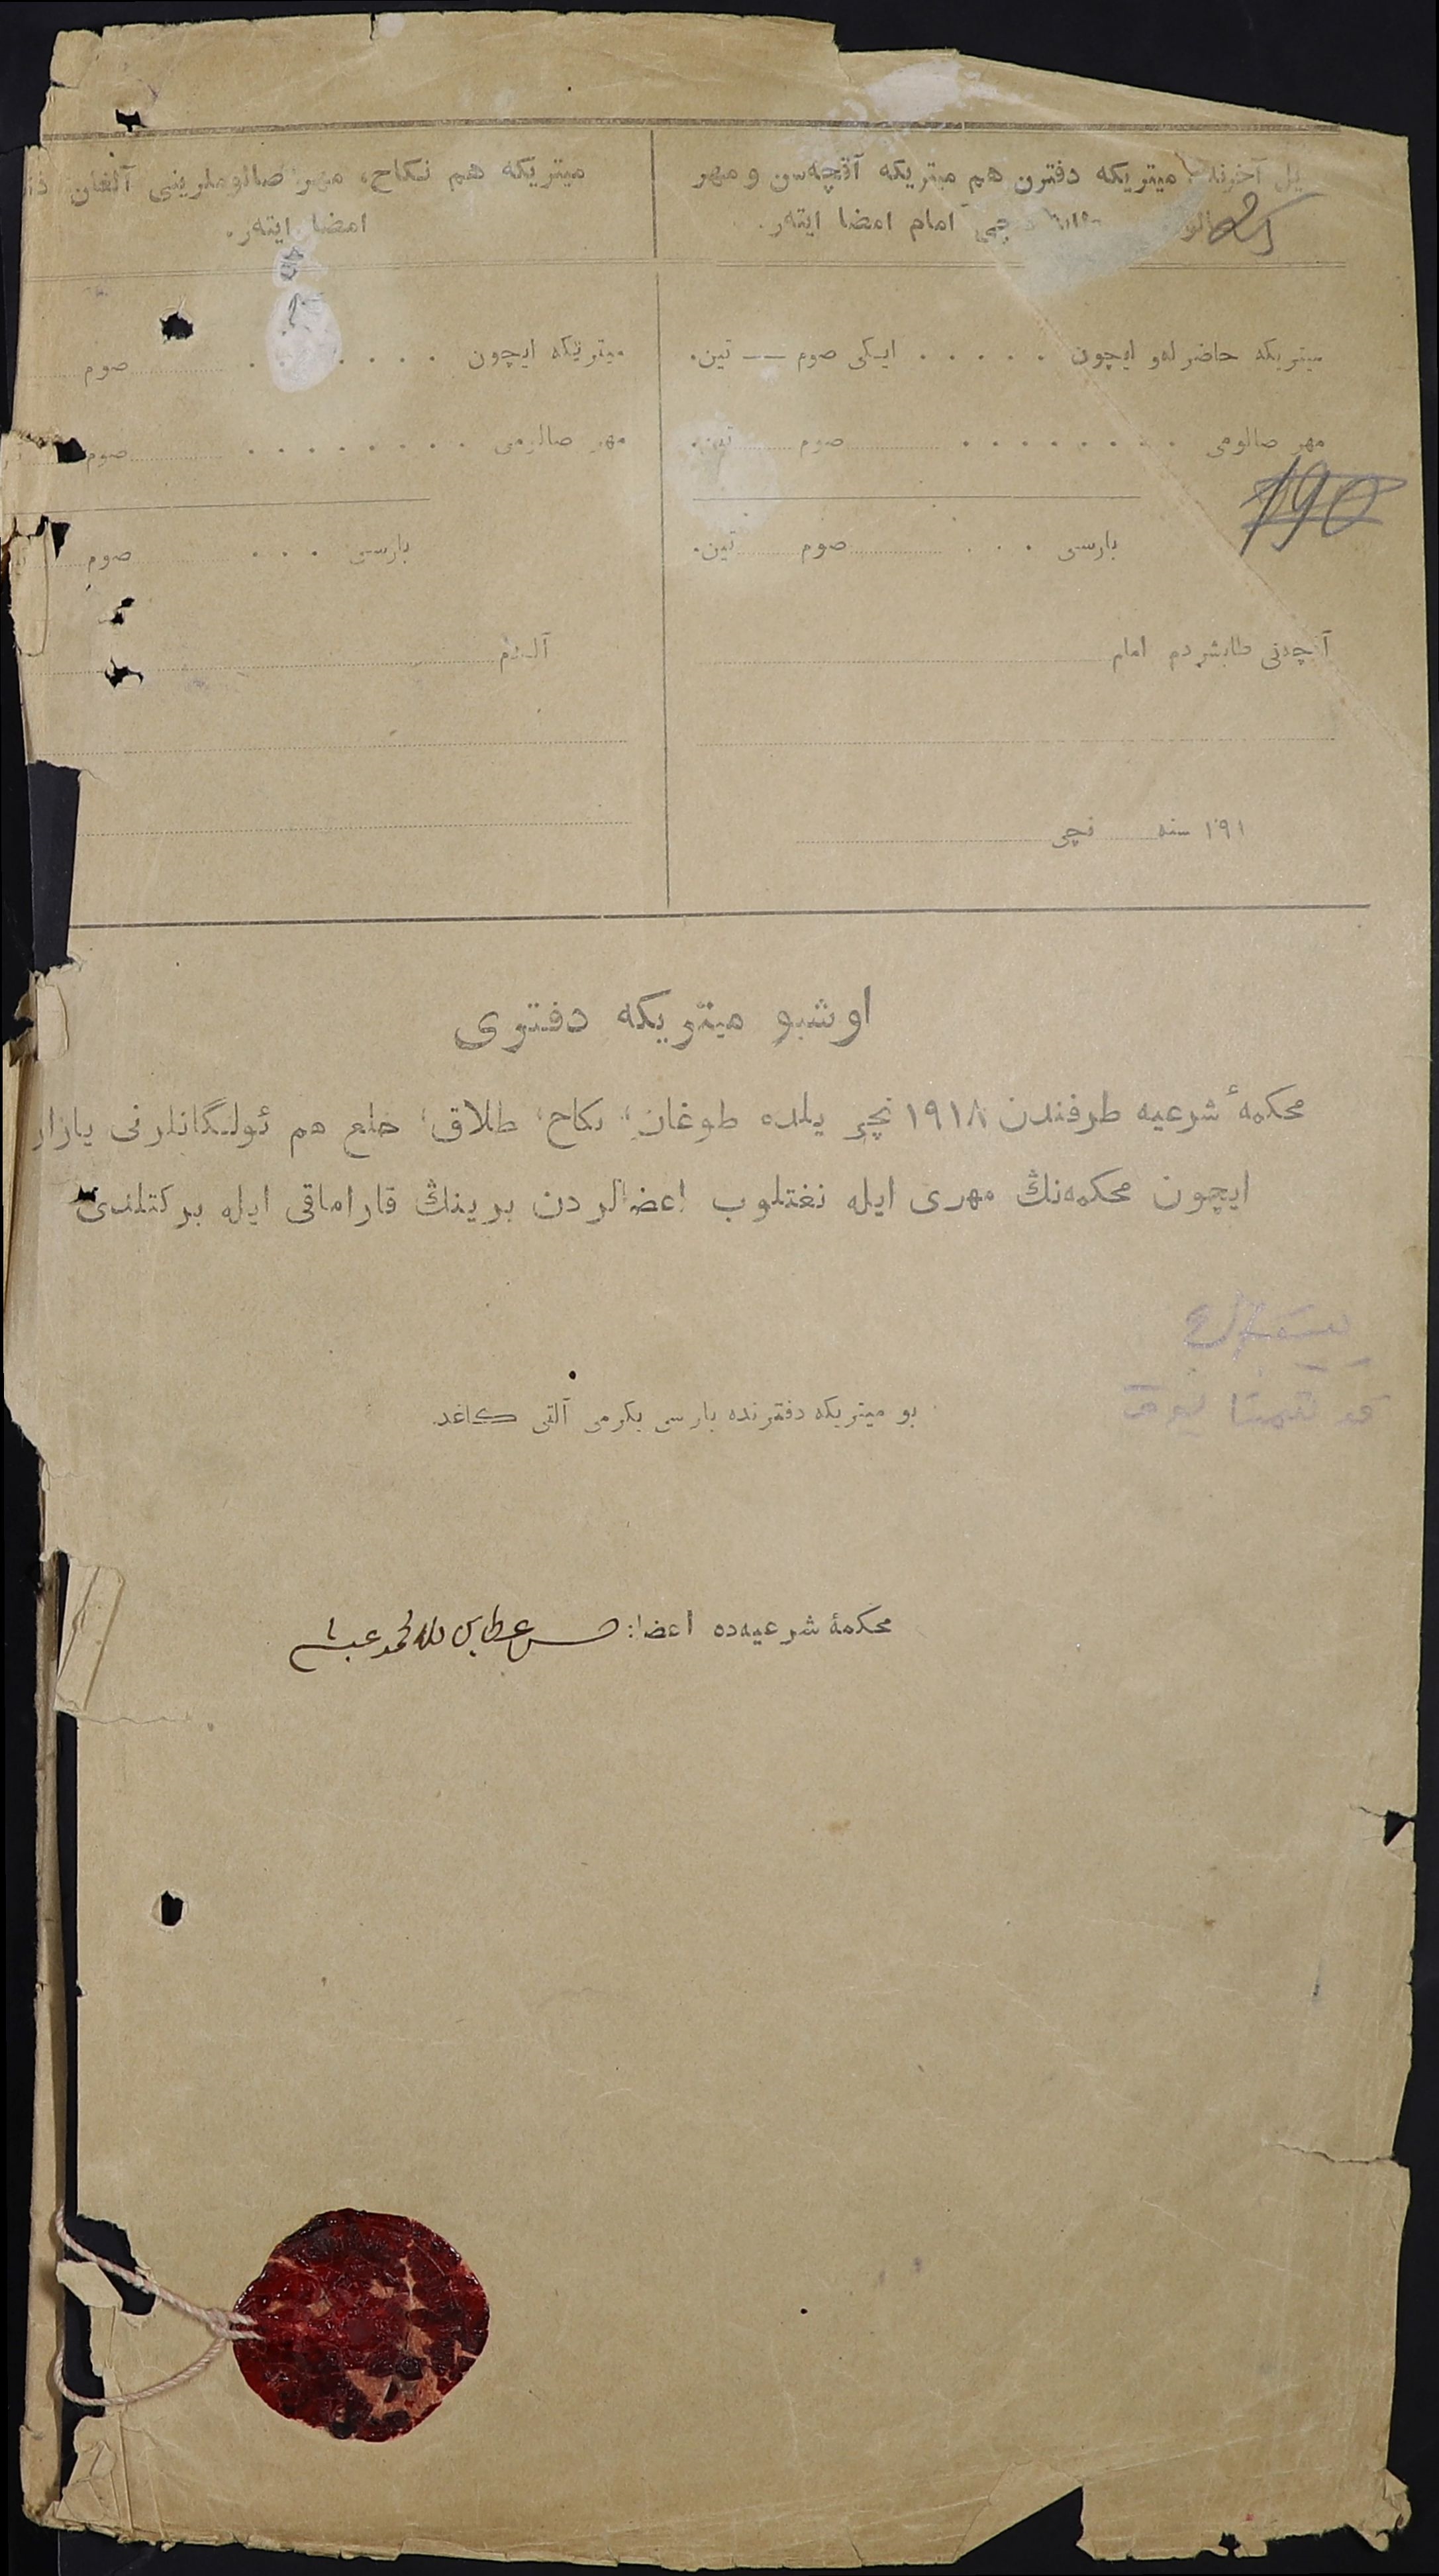 یل آخرنه میتریکه دفترن هم میتریکه آقچه‌سن و مهر
امام امضا ایته‌ر.
میتریکه حاضرله‌و ایچون . . . . . ایکی صوم — تین.
مهر صالومی . . . . . . . . صوم تین.
190
بارسی . . . صوم تین.
آقچه‌نی طابشردم امام
۱۹۱ سنه نچی
میتریکه هم نکاح، مهر صالوملرینی آلغان
امضا ایته‌ر.
میتریکه ایچون . . . . . . صوم
مهر صالومی . . . . . . . . صوم
بارسی . . . صوم
آلدم
اوشبو میتریکه دفتری
محکمهٔ شرعیه طرفندن ۱۹۱۸ نچی یلده طوغان، نکاح، طلاق، خلع هم ئولگانلرنی یازار
ایچون محکمه‌نڭ مهری ایله نغتلوب اعضالردن برینڭ قاراماقی ایله برکتلندی
بو میتریکه دفترنده بارسی یکرمی آلتی کاغد.
محکمهٔ شرعیه‌ده اعضا: